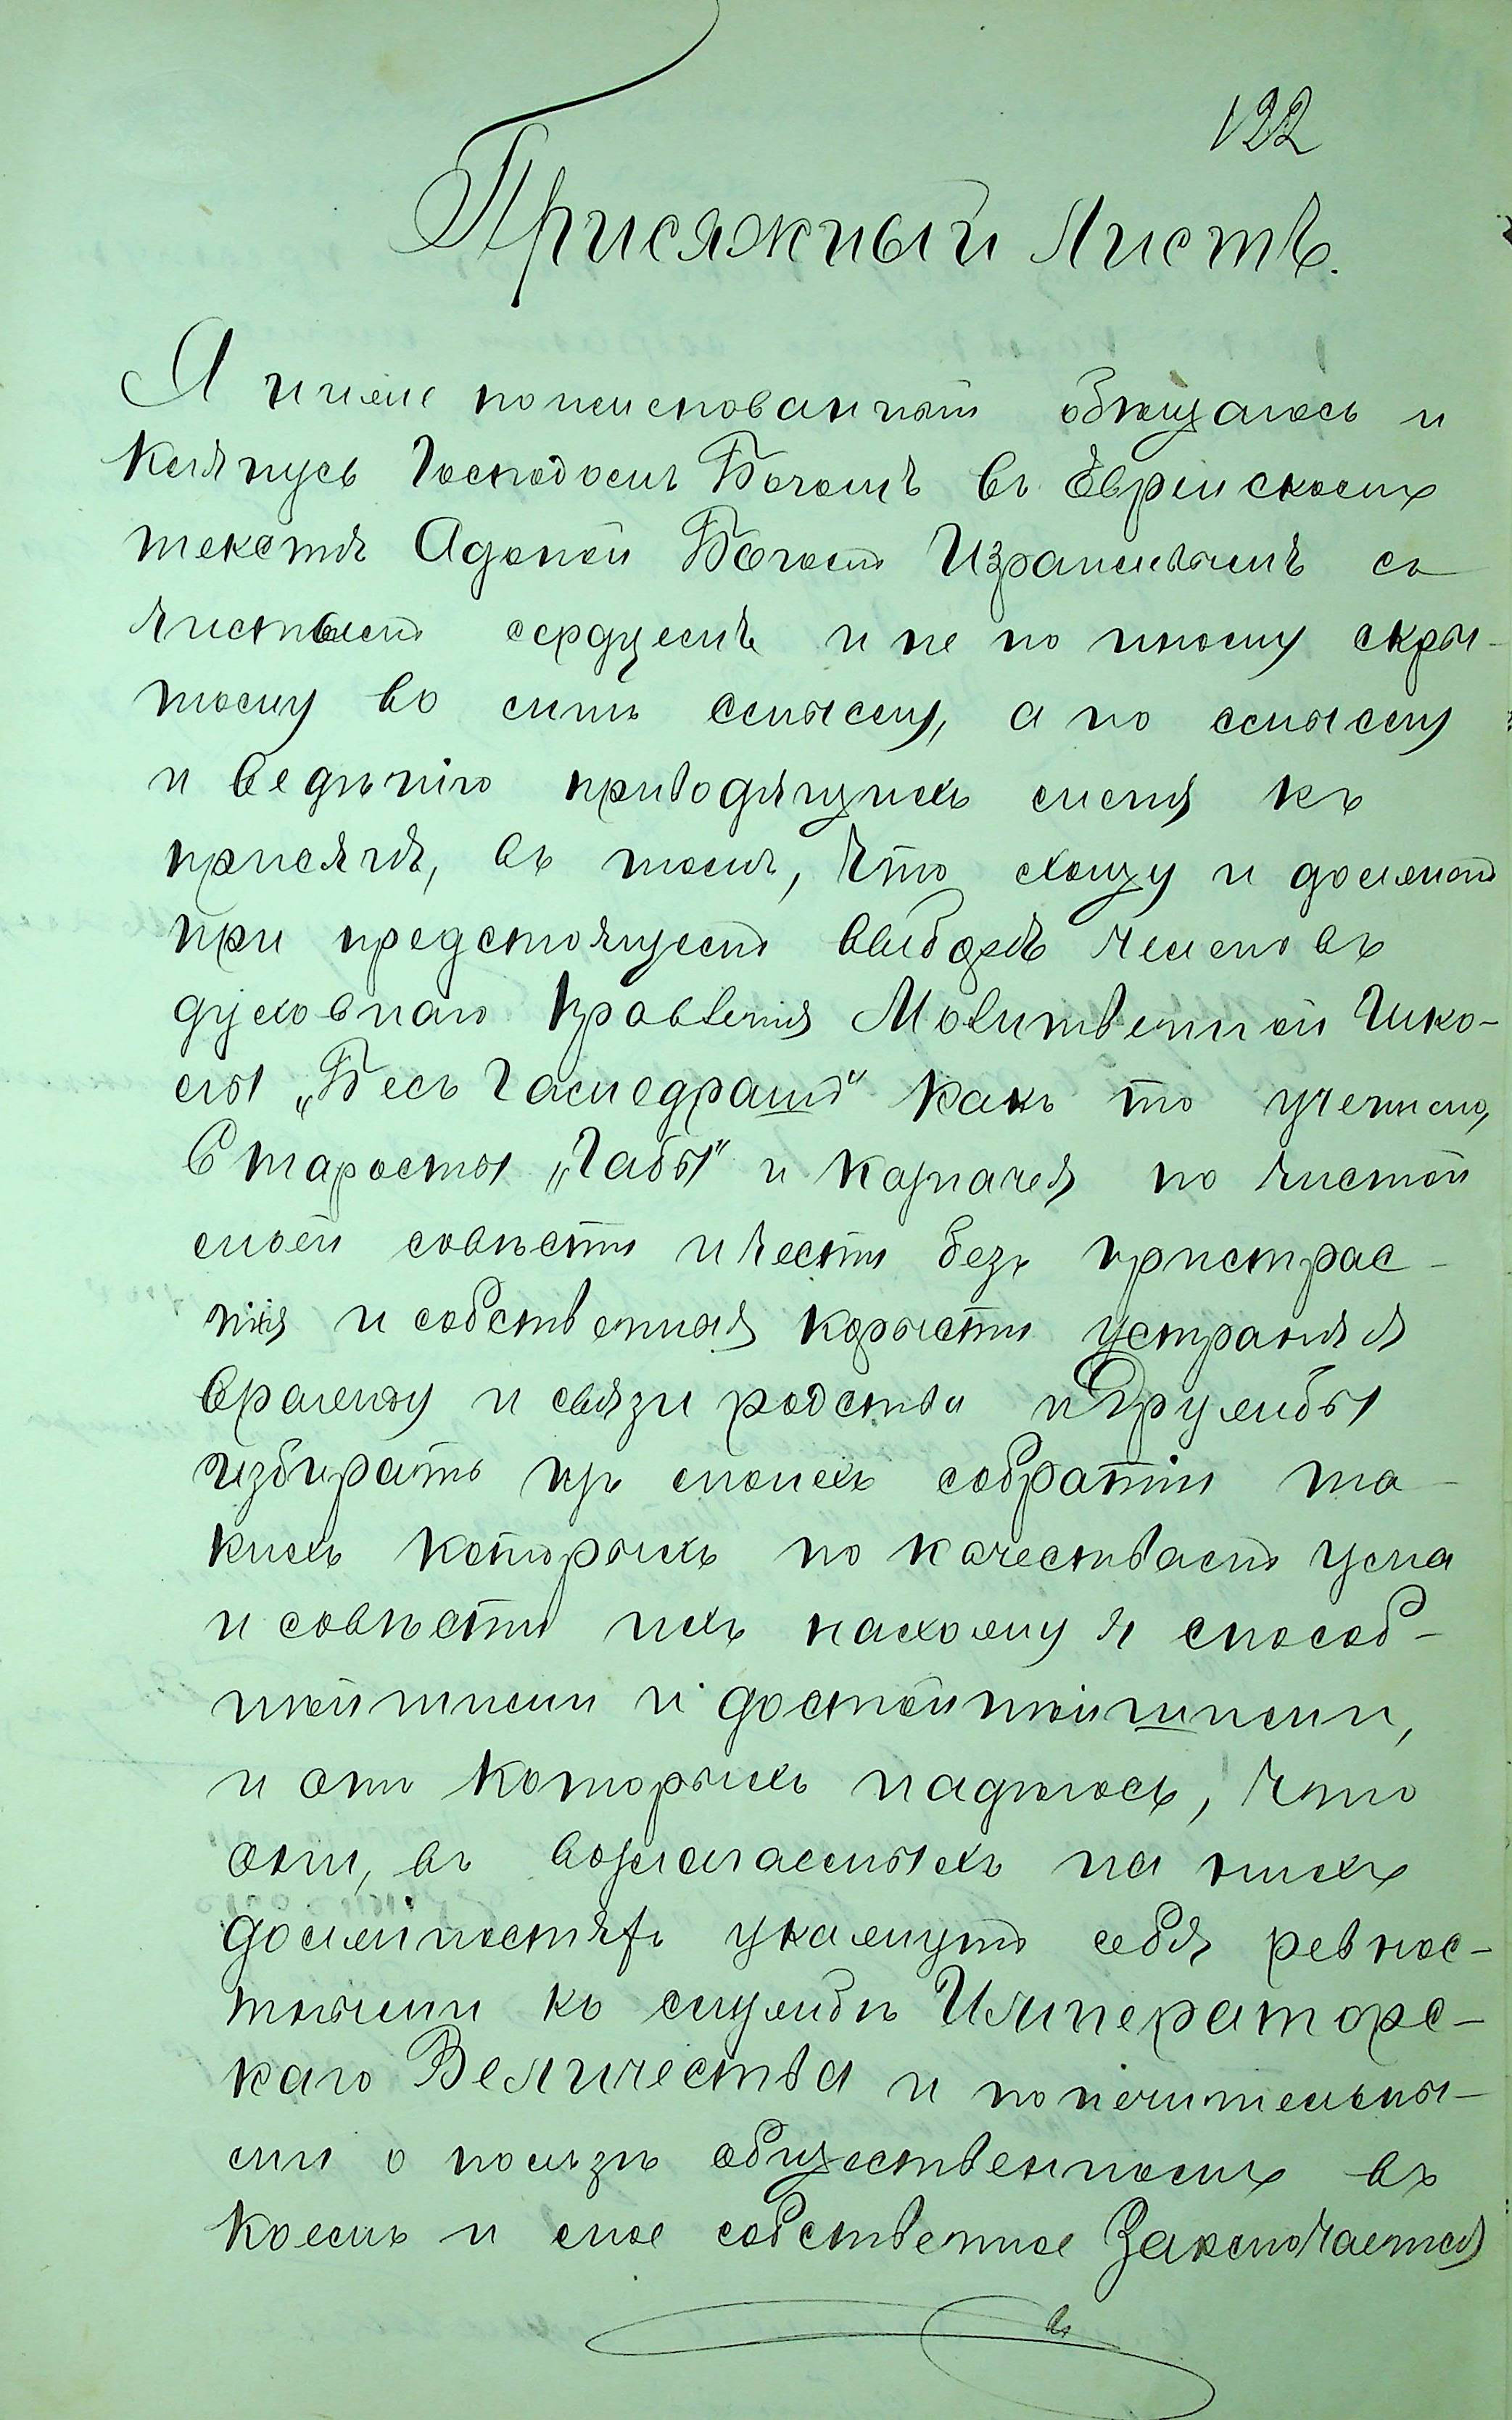 122
Присяжный Листъ.
Я ниже поименованный обѣщаюсь и
клянусь Господомъ Богомъ въ Еврейскомъ
текстѣ Адоной Богомъ Израилевымъ съ
чистымъ сердцемъ и не по иному скры-
тому во мнѣ смыслу, а по смыслу
и вѣдѣнію приводящихъ меня къ
присягѣ, въ томъ, что хощу и долженъ
при предстоящемъ выборѣ членовъ
духовнаго правленія Молитвенной Шко-
лы „Бесъ Гамедрашъ" какъ то ученаго,
Старосты „Габы" и казначея по чистой
моей совѣсти и чести безъ пристрас-
тія и собственныя корысти устраняя
вражду и связи родства и дружбы
избирать изъ моихъ собратіи та-
кихъ которыхъ по качествамъ ума
и совѣсти ихъ нахожу я способ-
нѣйшими и достойнѣйшими,
и отъ которыхъ надѣюсь, что
они, въ возлагаемыхъ на нихъ
должностяхъ укажутъ себя ревнос-
тными къ службѣ Императорс-
каго Величества и попечительны-
ми о пользѣ общественномъ въ
коемъ и мое собственное Заключается